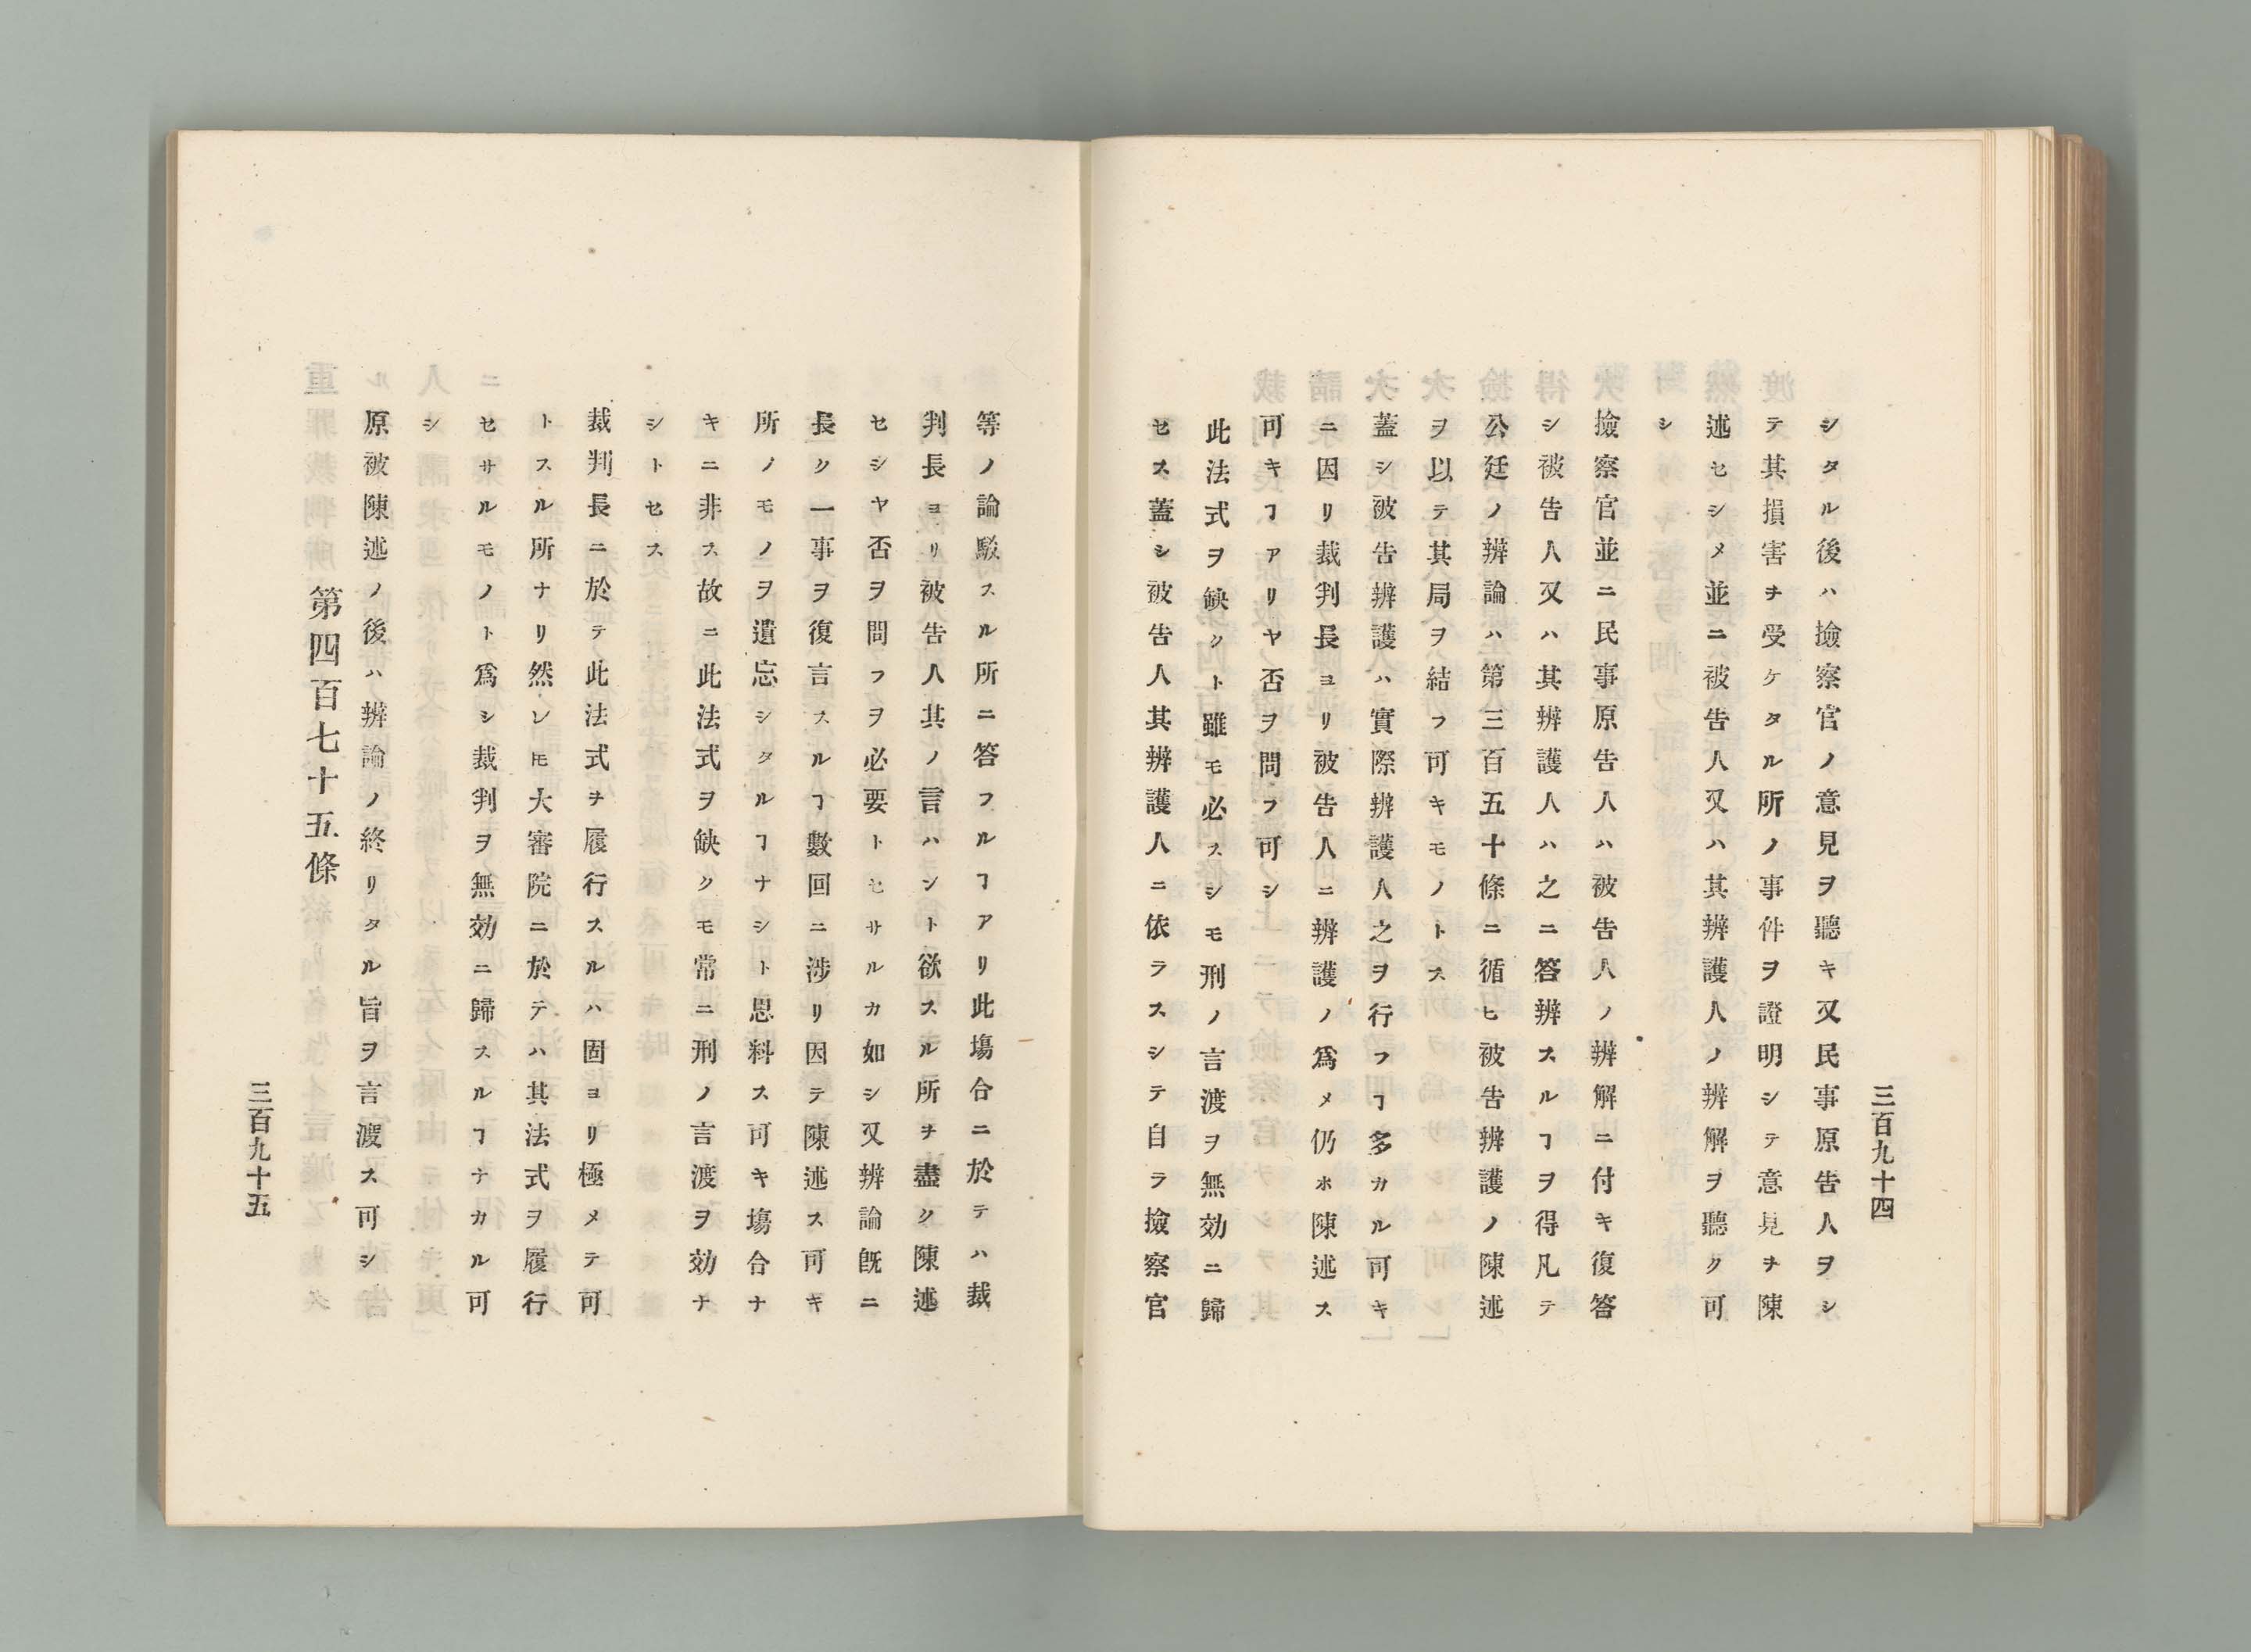 三百九十四
シタル後ハ撿察官ノ意見ヲ聽キ又民事原告人ヲシ
テ其損害ヲ受ケタル所ノ事件ヲ證明シテ意見ヲ陳
述セシメ並ニ被告人又ハ其辨護人ノ辨解ヲ聽ク可
シ
撿察官並ニ民事原告人ハ被告人ノ辨解ニ付キ復答
シ被告人又ハ其辨護人ハ之ニ答辨スルヿヲ得凡テ
公廷ノ辨論ハ第三百五十條ニ循ヒ被告辨護ノ陳述
ヲ以テ其局ヲ結フ可キモノトス
蓋シ被告辨護ハ實際辨護人之ヲ行フヿ多カル可キ
ニ因リ裁判長ヨリ被告人ニ辨護ノ爲メ仍ホ陳述ス
可キヿアリヤ否ヲ問フ可シ
此法式ヲ缺クト雖モ必スシモ刑ノ言渡ヲ無効ニ歸
セス蓋シ被告人其辨護人ニ依ラスシテ自ラ撿察官
等ノ論駁スル所ニ答フルヿアリ此塲合ニ於テハ裁
判長ヨリ被告人其ノ言ハント欲スル所ヲ盡ク陳述
セシヤ否ヲ問フヲ必要トセサルカ如シ又辨論旣ニ
長ク一事ヲ復言スルヿ數回ニ涉リ因テ陳述ス可キ
所ノモノヲ遺忘シタルヿナシト思料ス可キ塲合ナ
キニ非ス故ニ此法式ヲ缺クモ常ニ刑ノ言渡ヲ効ナ
シトセス
裁判長ニ於テ此法式ヲ履行スルハ固ヨリ極メテ可
トスル所ナリ然レ𪜈大審院ニ於テハ其法式ヲ履行
セサルモノト爲シ裁判ヲ無効ニ歸スルヿナカル可
シ
原被陳述ノ後ハ辨論ノ終リタル旨ヲ言渡ス可シ
第四百七十五條
三百九十五